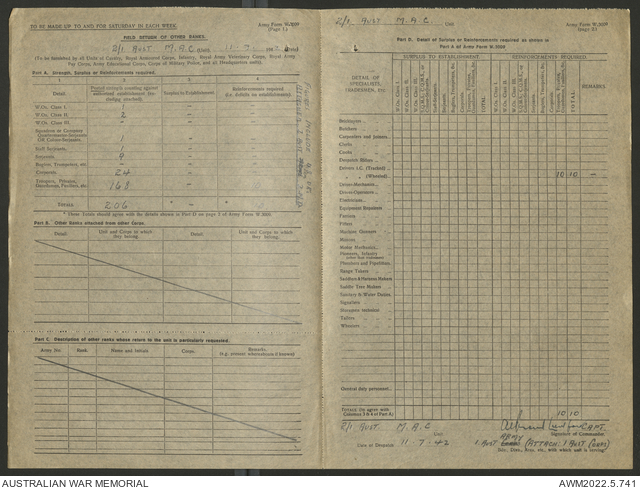 TO BE MADE UP TO AND FOR SATURDAY IN EACH WEEK.
Army Form W.3009
(Page 1.)
FIELD RETURN OF OTHER RANKS.
2/1 AUST M.A.C. (Unit) 11-7- 1942 (Date)
(To be furnished by all Units of Cavalry, Royal Armoured Corps, Infantry, Royal Army Veterinary Corps, Royal Army
Pay Corps, Army Educational Corps, Corps of Military Police, and all Headquarters units).
Part A. Strength, Surplus or Reinforcements required.
1 2 3 4
Detail
Posted strength counting against authorised establishment (including attached)
Surplus to Establishment
Reinforcements required (i.e. deficits on establishment)
W.Os. Class I. 1
W.Os. Class II. 2
W.Os. Class III. -
Squadron or Company Quartermaster-Serjeants OR Colour-Serjeants 1
Staff Serjeants 1
Serjeants 9
Buglers, Trumpeters, etc. -
Corporals 24
Troopers, Privates, Guardsmen, Fusiliers, etc. 168
TOTALS 206 * - * -
* These Totals should agree with the details shown in Part D on page 2 of Army Form W.3009.
Part B. Other Ranks attached from other Corps.
Detail
Unit and Corps to which they belong.
Detail
Unit and Corps to which they belong.
Part C. Description of other ranks whose return to the unit is particularly requested.
Army No.
Rank.
Name and Initials
Corps.
Remarks.
(e.g. present whereabouts if known)
2/1 AUST M.A.C. Unit
Army Form W.3009
(page 2)
Part D. Detail of Surplus or Reinforcements required as shown in
Part A of Army Form W.3009
DETAIL OF SPECIALISTS, TRADESMEN, ETC.
SURPLUS TO ESTABLISHMENT
REINFORCEMENTS REQUIRED
REMARKS
W.Os. Class I.
W.Os. Class II.
W.Os. Class III.
TOTAL
Butchers
Carpenters and Joiners
Clerks
Cooks
Despatch Riders
Drivers i.c. (Tracked)
(Wheeled) 10 10 -
Driver-Mechanics
Driver-Operators
Electricians
Equipment Repairers
Farriers
Fitters
Masons
Motor Mechanics
Range Takers
Saddle Tree Makers
Sanitary & Water Duties
Signallers
Tailors
Wheelers
General duty personnel
TOTALS (to agree with Columns 3 & 4 of Part A) 10 10
2/1 AUST M.A.C Unit
CAPT.
Signature of Commander.
Date of Despatch 11-7-42
1 AUST ARMY (ATTACH. 1 AUST CORPS)
Bde., Divn., Area, etc., with which unit is serving
AUSTRALIAN WAR MEMORIAL
AWM2022.5.741